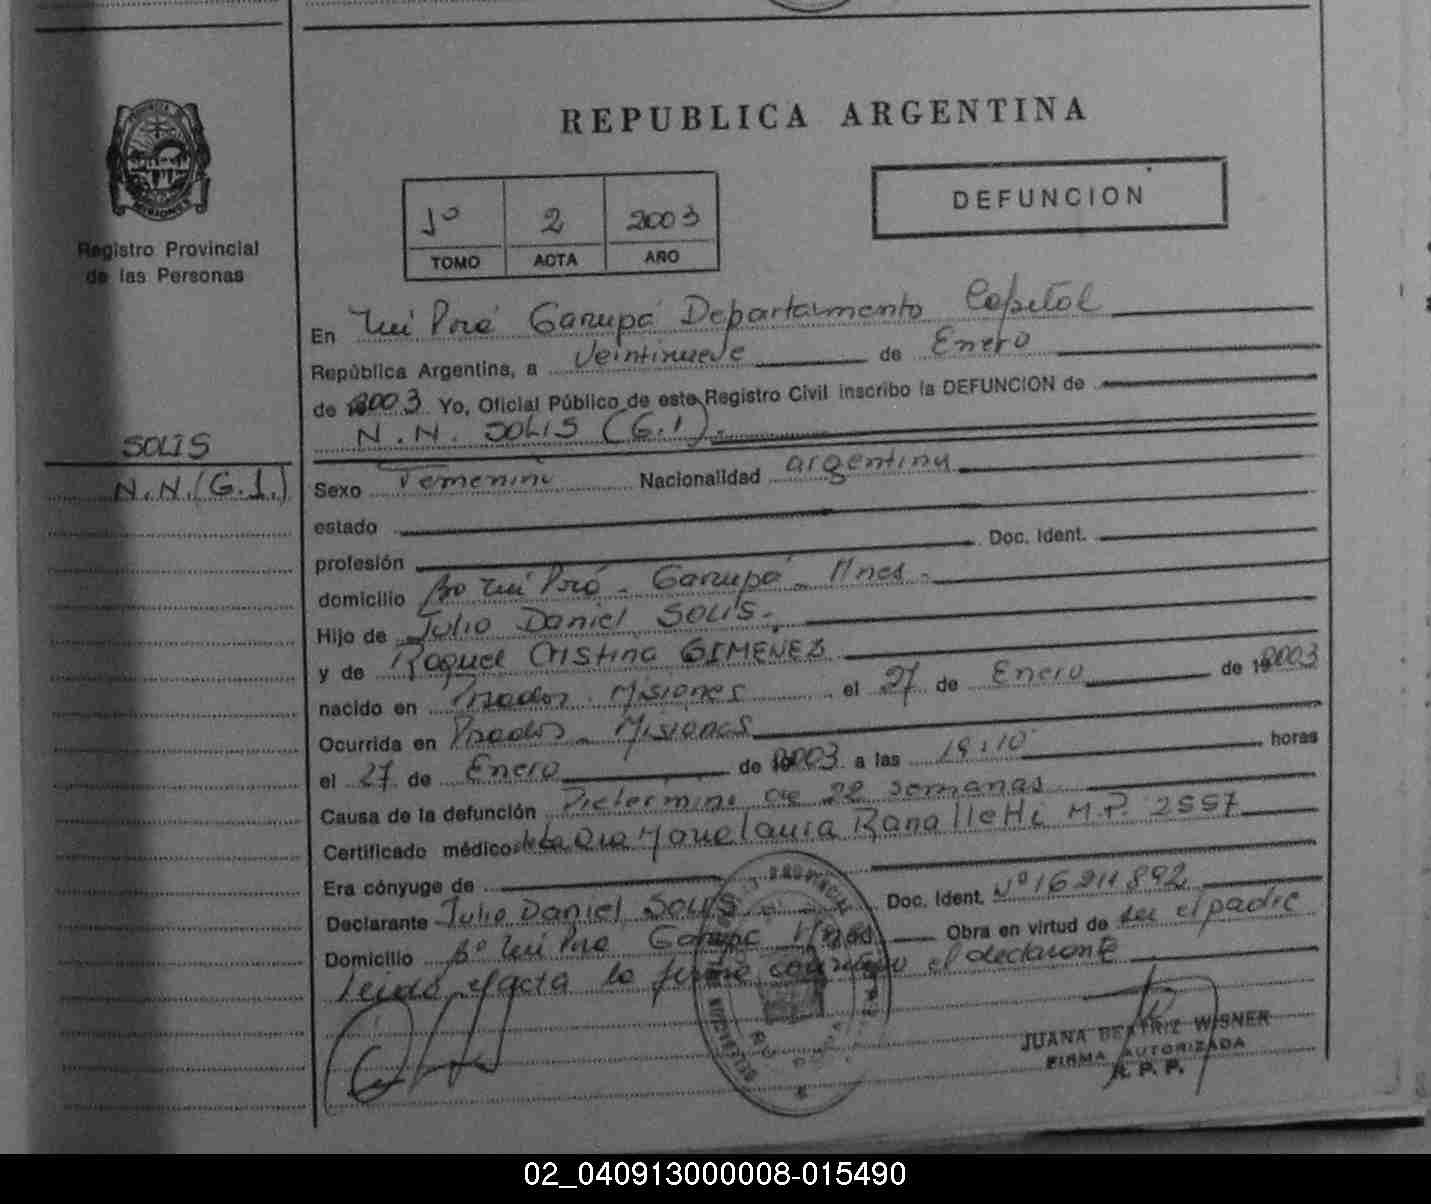 REPUBLICA ARGENTINA
DEFUNCION
Jº 2 2003
TOMO ACTA AÑO
Registro Provincial
de las Personas
SOLIS
N.N.(G.1.)
En Garupá Departamento Capital
República Argentina, a Veintinueve de Enero
de 2003 Yo, Oficial Público de este Registro Civil inscribo la DEFUNCION de
N.N. SOLIS (G.1).
Sexo Femenino Nacionalidad argentina
estado
profesión Doc. Ident.
domicilio Bº Garupá - Mnes.
Hijo de Julio Daniel SOLIS.
y de Raquel Cristina GIMENEZ
nacido en Posadas. Misiones el 27 de Enero de 2003
Ocurrida en Posadas - Misiones
el 27 de Enero de 2003 a las 19:10 horas
Causa de la defunción de 22 semanas
Certificado médico de la Dra M.P. 2557
Era cónyuge de
Declarante Julio Daniel SOLIS Doc. Ident. Nº 16211892
Domicilio Bº Garupá Obra en virtud de ser el padre
Leida el acta la firma conmigo el declarante
JUANA BEATRIZ WISNER
FIRMA AUTORIZADA
R. P. P.
02_040913000008-015490